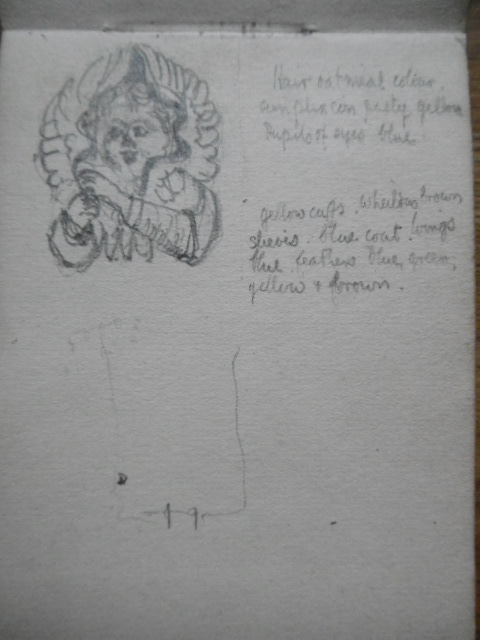 Hair oatmeal colour,
complexion pasty yellow
Pupils of eyes blue.
yellow cuffs. brown
sleeves. blue coat. wings
blue, feathers blue, green,
yellow & brown.